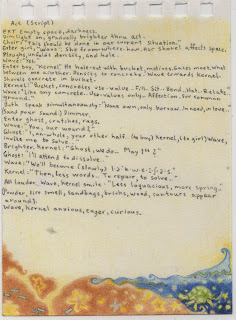 Act (Script)
EXT Empty space, darkness.
Dimlight on, gradually brighter thru act.
Choir: "This should be done in our current situation."
Enter girl, "Wave": She from where how. Her shawl affects space,
weight, unfold density, and hole.
Wave: "Yes."
Enter boy, "Kernel" He hole-rod with bucket, mutinos. Gazes meet, what
between one another. Density to concrete. Wave towards Kernel.
Should concrete in bucket.
Kernel: "Bucket, concretes Use-value. Fill. Sit. Bend. Mat. Relate."
Wave: "Like any concrete. Use-values only. Affection, for common
ground."
Both speak simultaneously: "None own, only borrow. In need, in love."
(Loud poor sound) Dimmer.
Enter ghost, scratches, rags.
Wave: "You, our wound?"
Ghost: "I, no whole, your other half. (to boy) Kernel, (to girl) Wave,
invites to solve..."
Brighter. Kernel: "Ghost, we do... May 1st?"
Ghost: "I'll attend to dissolve..."
Wave: "We'll become (slowly)
Kernel: "Then, less words.. To repair, to solve.."
All louder. Wave, kernel smile: "Less loquacious, more spring."
(Powder, fire smell, sandbags, bricks, wood, contours appear
around).
Wave, kernel anxious, eager, curious.